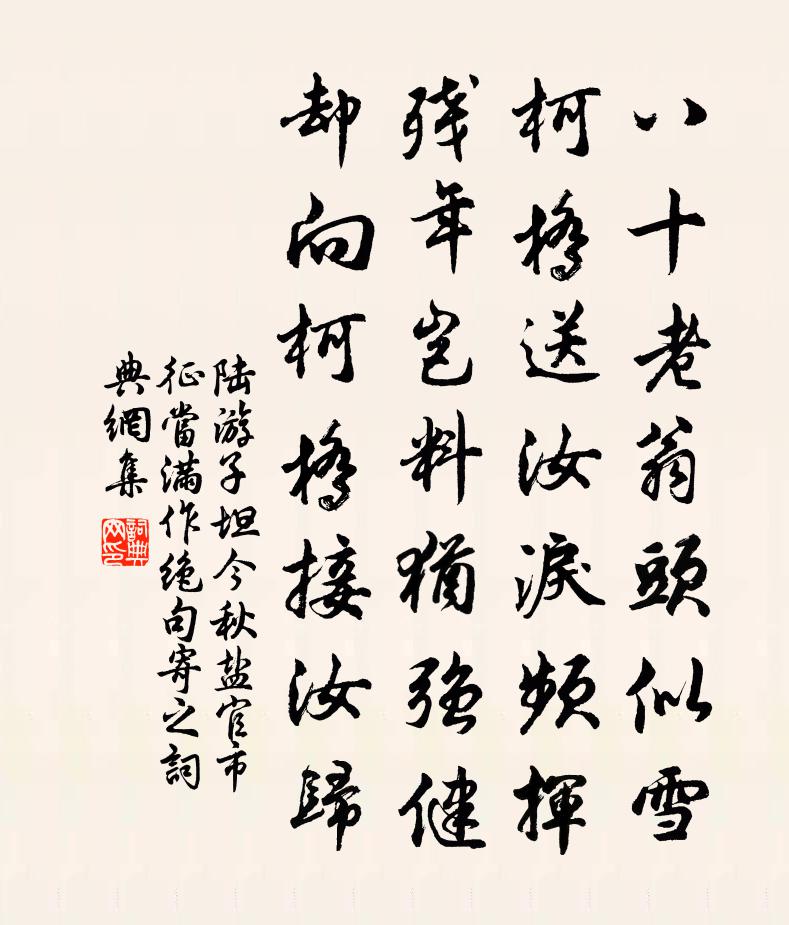 八十老翁頭似雪
柯橋送汝淚頻揮
残年豈料猶強健
却向柯橋接汝歸
陆游子坦今秋盐官市
征當滿作绝句寄之詞
典網集
詞典
网印